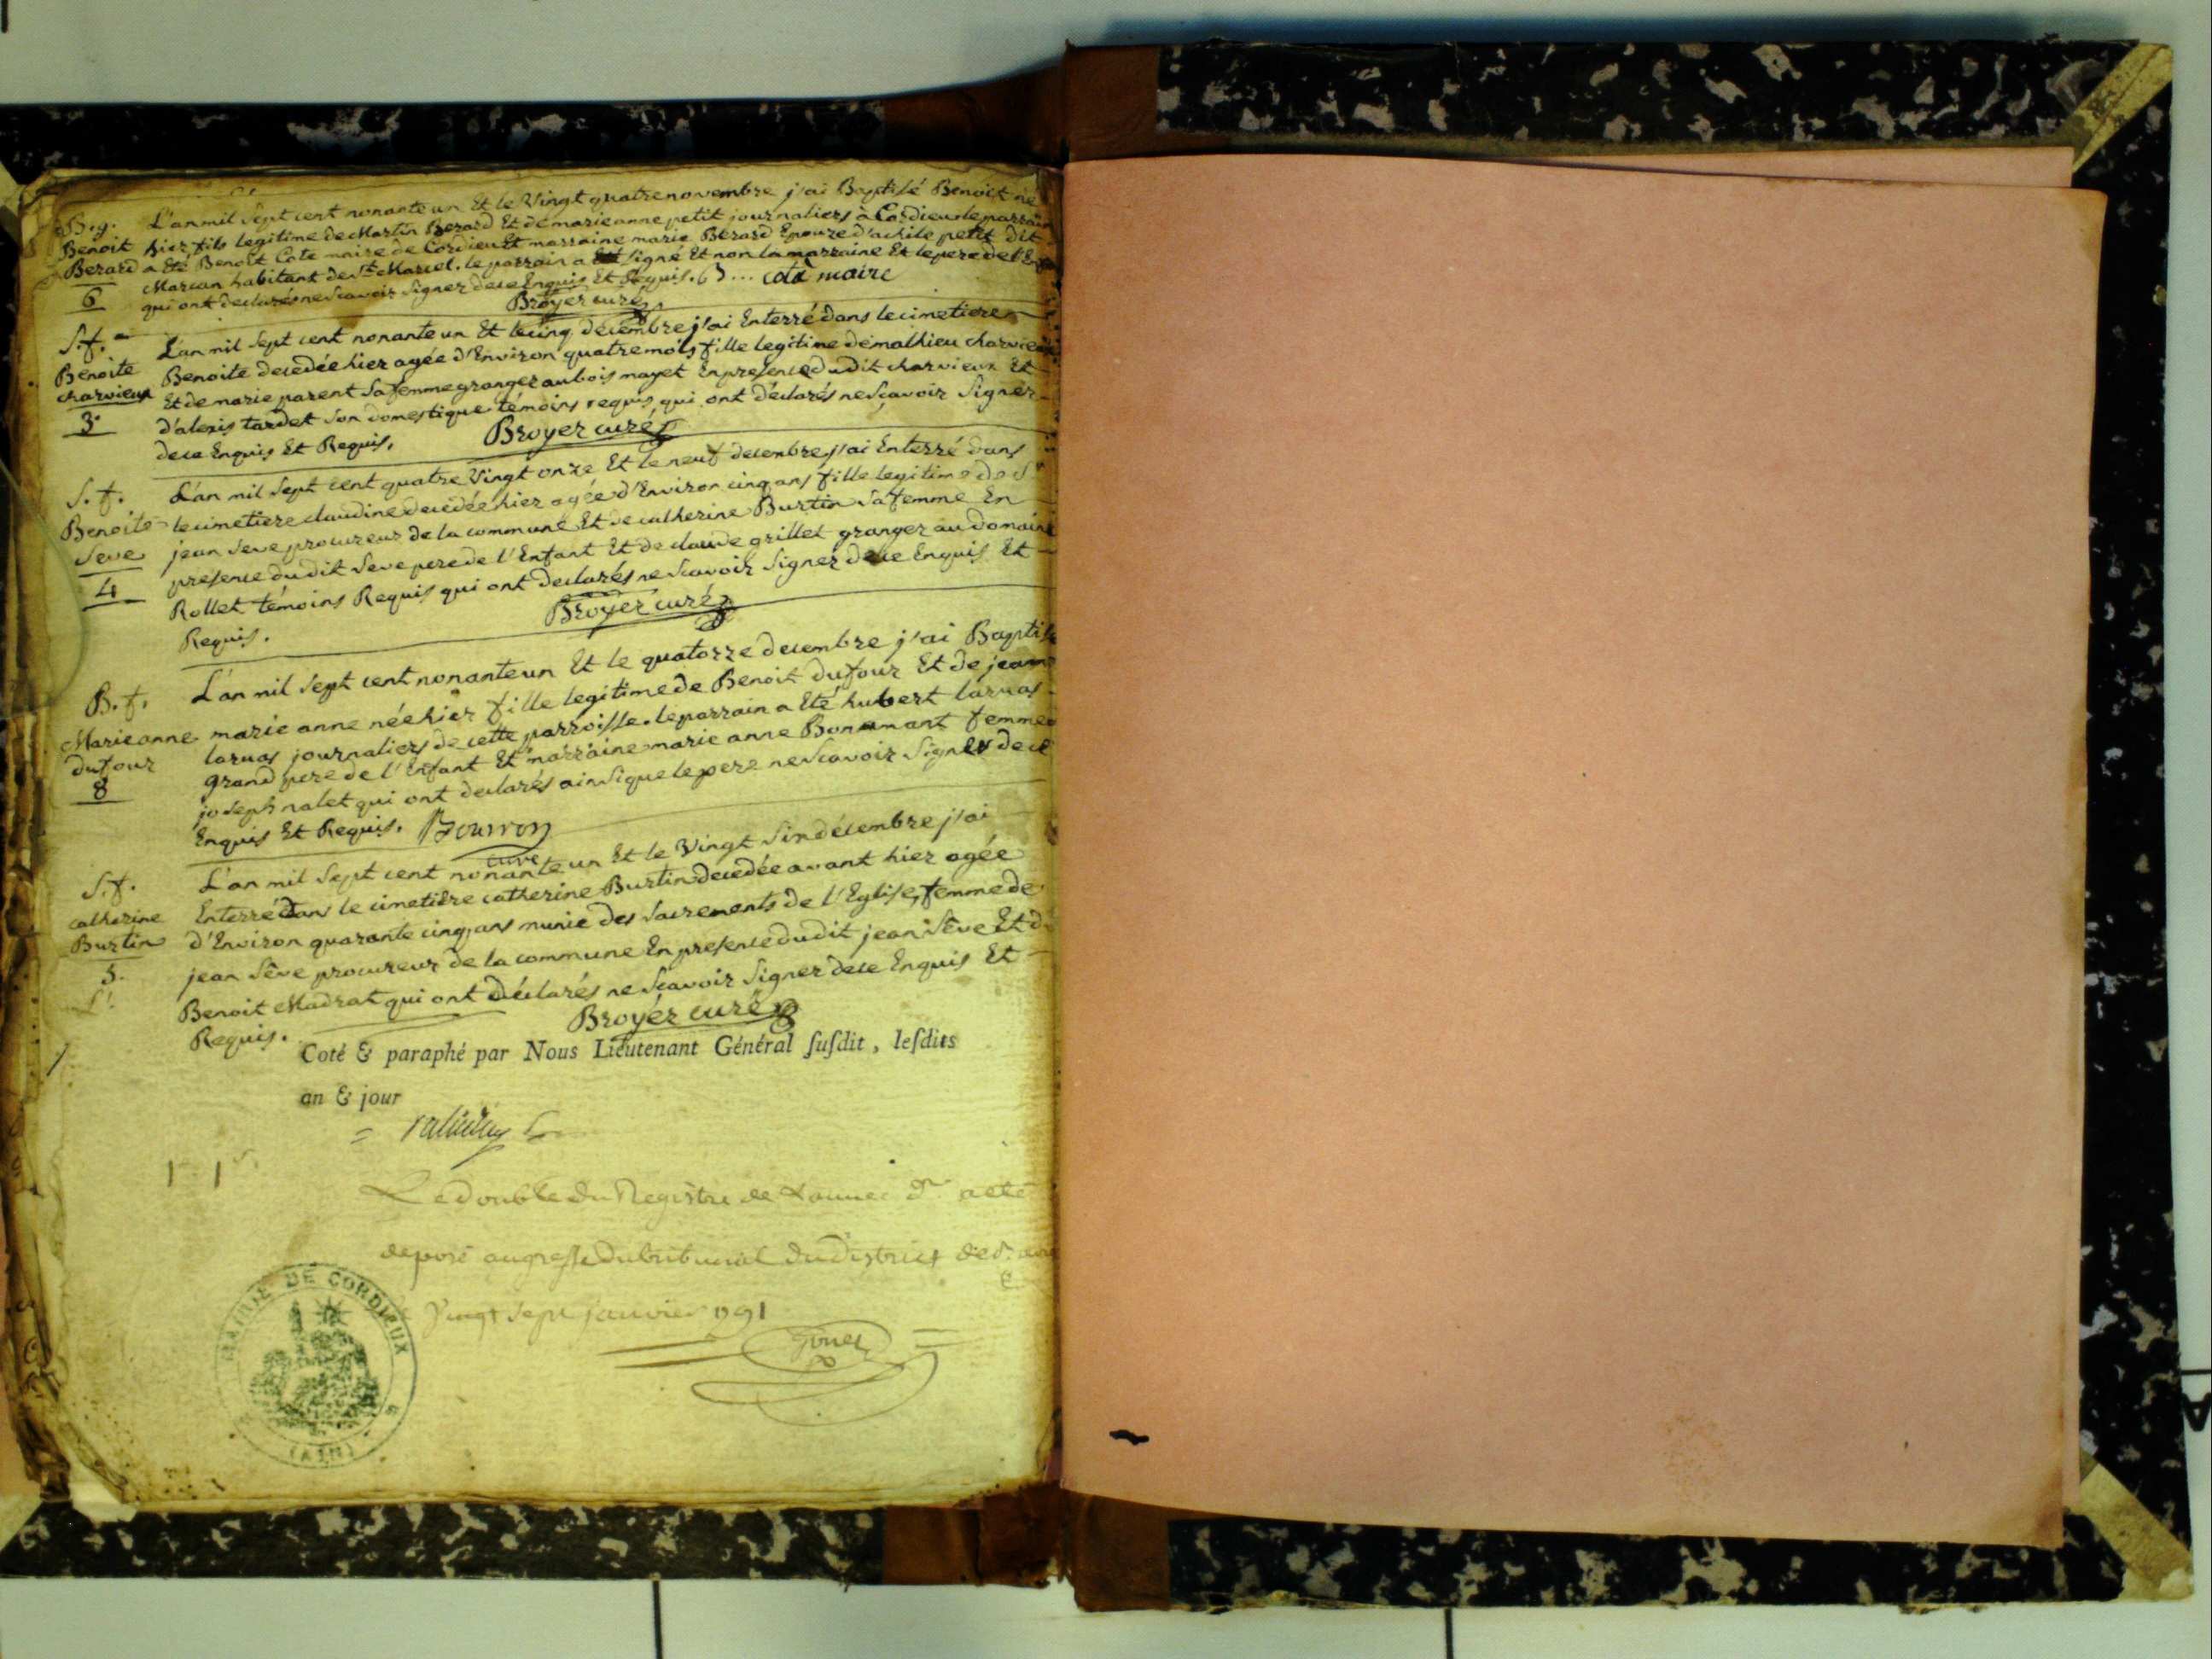 B.g. L'an mil Sept cent nonante un Et le Vingt quatre novembre j'ai Baptisé Benoit né
Benoit hier fils legitime de Martin Berard Et de marie anne petit journaliers à Cordieu le parrain
Berard a Eté Benoit Cote maire de Cordieu Et marraine marie Berard Epouze d'achile petit dit
Marian habitant de St Marcel. le parrain a signé Et non la marraine Et le pere de l'En
6 qui ont declarés ne Scavoir Signer de ce Enquis Et Requis. B... Cote maire
Broyer curé
S.f. L'an mil Sept cent nonante un Et le cinq décembre j'ai Enterré dans le cimetiere
Benoite Benoite decedée hier agée d'Environ quatre mois fille legitime de mathieu charvieux
charvieux Et de marie parent Sa femme granger au bois mayet En presence dudit charvieux Et
3 d'alexis tardet Son domestique témoins requis qui ont déclarés ne Sçavoir Signer
de ce Enquis Et Requis. Broyer curé
S.f. L'an mil Sept cent quatre Vingt onze Et le neuf decembre j'ai Enterré dans
Benoite le cimetiere claudine decedée hier agée d'Environ cinq ans fille legitime de
Seve jean Seve procureur de la commune Et de catherine Burtin Sa femme En
4 presence dudit Seve pere de l'Enfant Et de claude grillet granger au domaine
Rollet témoins Requis qui ont declarés ne Scavoir Signer de ce Enquis Et
Requis. Broyer curé
B.f. L'an mil Sept cent nonante un Et le quatorze decembre j'ai Baptisé
Marie anne marie anne née hier fille legitime de Benoit dufour Et de jeanne
dufour laruas journaliers de cette parroisse. le parrain a Eté hubert laruas
8 grand pere de l'Enfant Et marraine marie anne Bonamant femme
joseph nalet qui ont declarés ainsi que le pere ne Scavoir Signer de ce
Enquis Et Requis. Bourron
curé
S.f. L'an mil Sept cent nonante un Et le Vingt Six décembre j'ai
catherine Enterré dans le cimetiére catherine Burtin decedée avant hier agée
Burtin d'Environ quarante cinq ans munie des Sacrements de l'Eglise, femme de
5. jean Sêve procureur de la commune En presence dudit jean Sêve Et de
Benoit Madrat qui ont déclarés ne Scavoir Signer de ce Enquis Et
Requis. Broyer curé
Coté & paraphé par Nous Lieutenant Général ſuſdit, leſdits
an & jour
Le double du Registre de L'année dr a eté
deposé au greffe du tribunal du District de
Vingt Sept janvier 1791
MAIRIE DE CORDIEUX
(AIN)